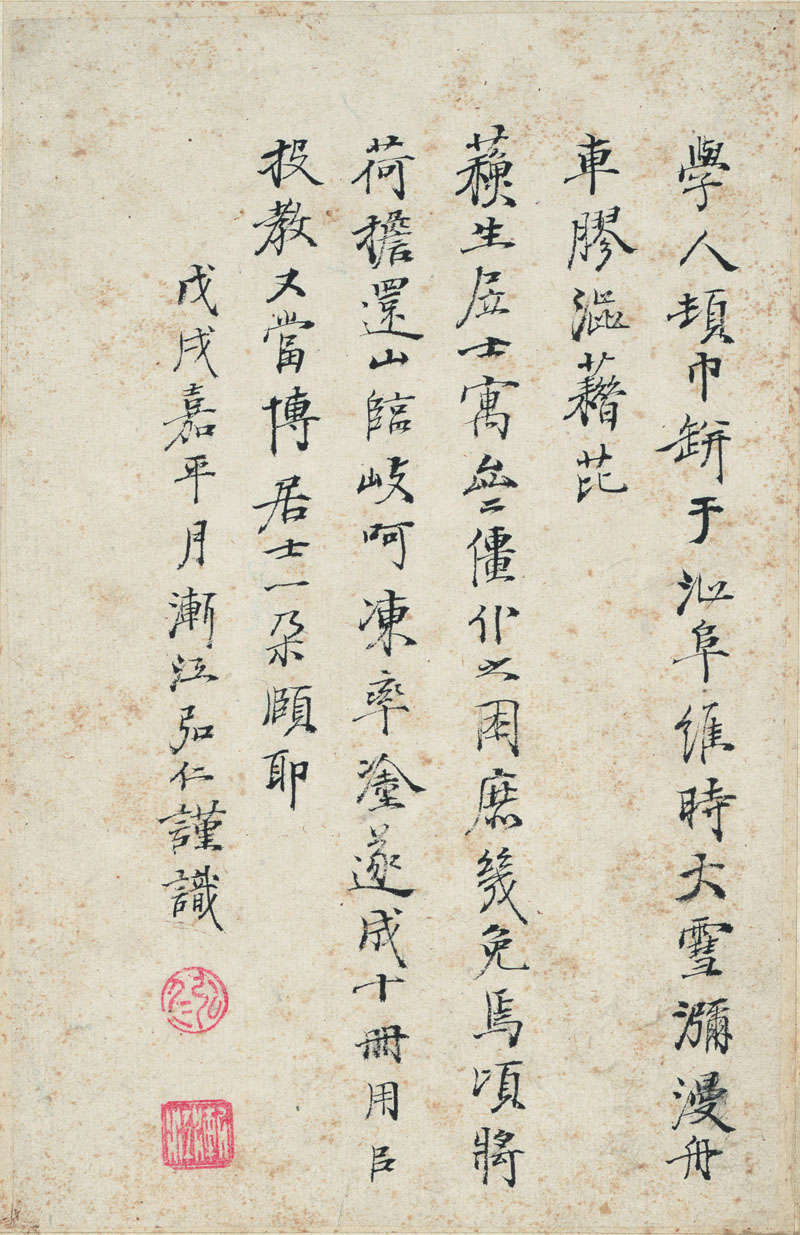 學人頓巾缾于阜維時大雪瀰漫舟
車膠澁藉芘
生居士寓亝僵仆之困庶幾免焉頃將
荷擔還山臨岐呵凍率塗遂成十冊用㠯
投教又當博居士一朶頤耶
戊戌嘉平月漸江弘仁謹識
弘仁
漸江